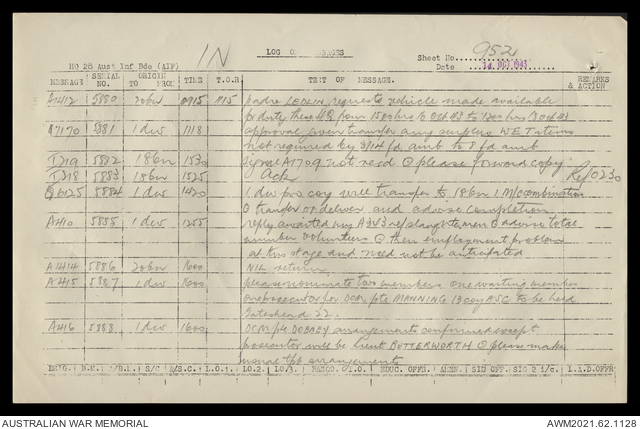 LOG OF MESSAGES
HQ 28 Aust Inf Bde (AIF) IN Sheet No. 952
Date 14 1943
MESSAGE SERIAL NO. ORIGIN TO FROM TIME T.O.R TEXT OF MESSAGE. REMARKS & ACTION
A1412 5880 20bn 0915 1115 padre requests vehicle made available
for duty these HQ from 1500 hrs to 1200 hrs
Q7170 5881 1 div 1118 approval given transfer any surplus WET items
not required by 3/14 fd amb to 8 fd amb
D19 5882 18bn 1530 A1709 not recd @ please forward copy
D18 5883 18bn 1525 Ack
Q6125 5884 1 div 1420 1 div pro coy will transfer to 18bn 1 M/combination
@ transfer or deliver and advise completion
A410 5885 1 div 1255 reply awaited my re slaughtermen @ advise total
number volunteers @ them employment problem
at this stage and need not be anticipated
A1414 5886 20bn 1600 NIL return
A415 5887 1 div 1600 please nominate two members one waiting member
one prosecutor for DCM pte MANNING 13 coy ASC to be held
Gateshead 22.
A416 5888 1 div 1600 DCM pte arrangements confirmed except
prosecutor will be Lieut BUTTERWORTH @ please make
usual tpt arrangements
BRIG. B.M. S/C A/S.C. L.O.1. LO.2. LO.3. EDUC. OFFR. AMEN. SIG OFF. SIG 2 i/c. L.A.D. OFFR
AUSTRALIAN WAR MEMORIAL AWM2021.62.1128